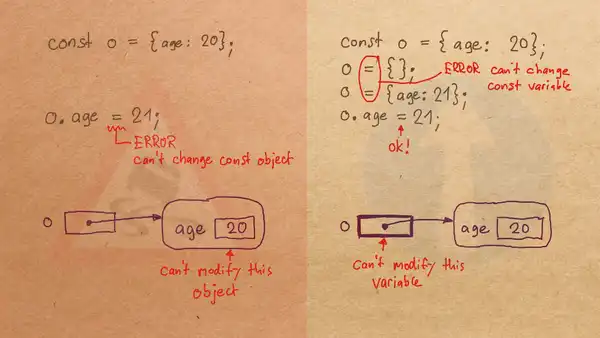 const o = {age: 20};
o.age = 21;
ERROR
can't change const object
o
age 20
can't modify this
object
const o = {age: 20};
o = {};
ERROR can't change
const variable
o = {age: 21};
o.age = 21;
ok!
o
age 20
Can't modify this
variable